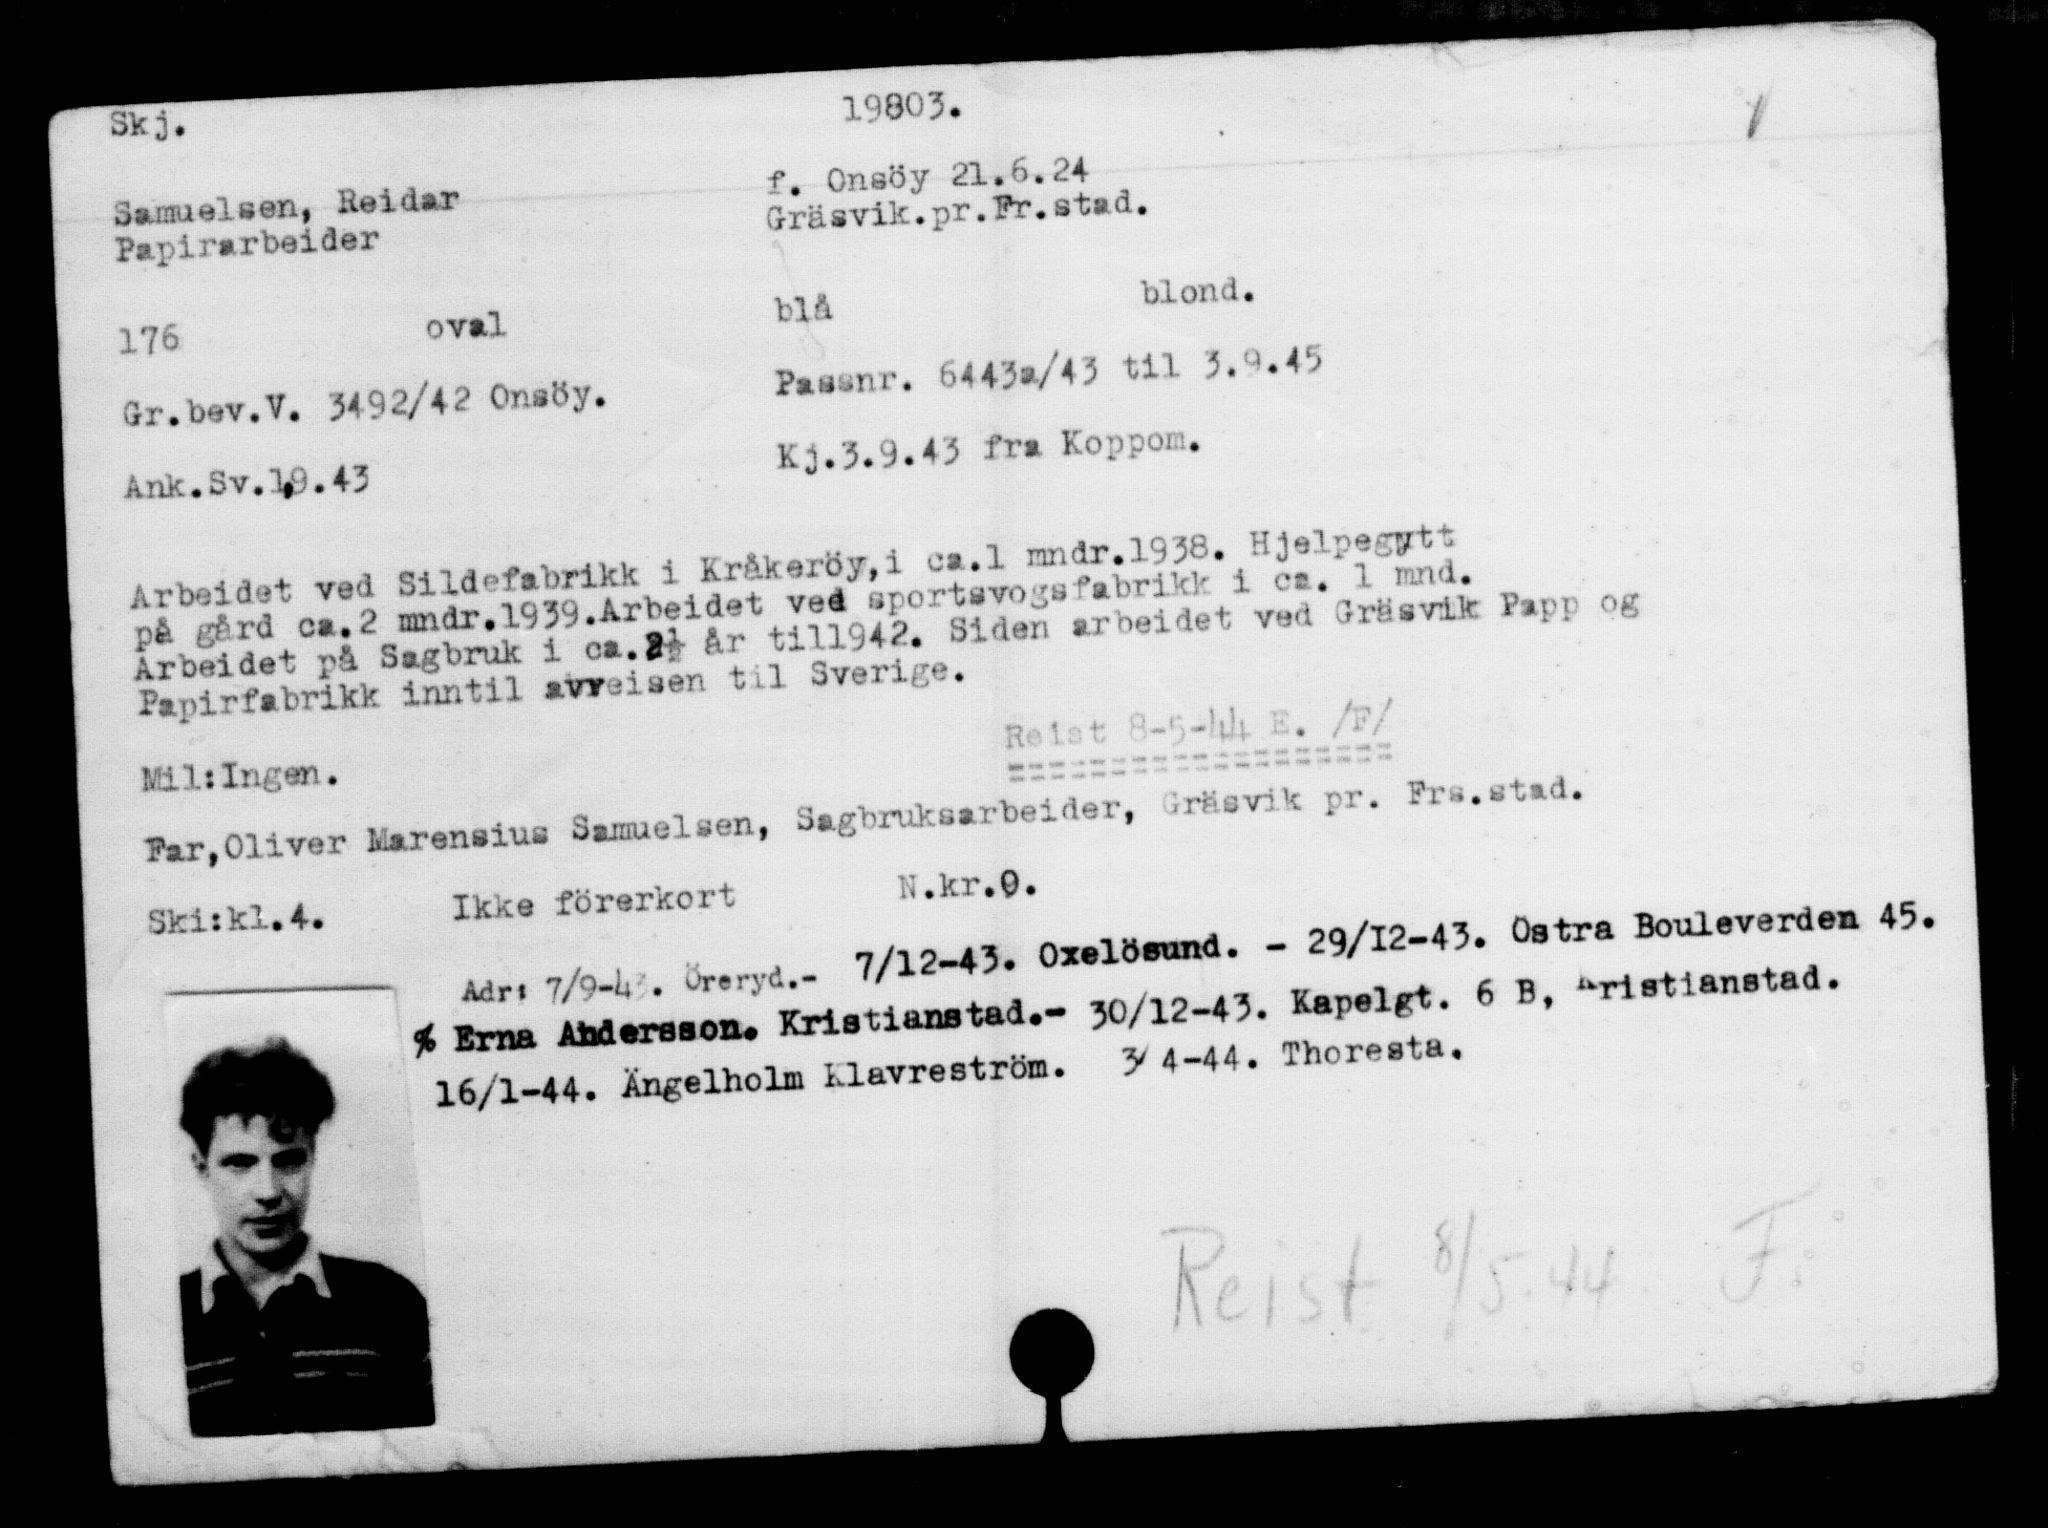 Skj. 19803.
f. Onsöy 21.6.24
Samuelsen, Reidar Gräsvik.pr.Fr.stad.
Papirarbeider
176 oval blå blond.
Gr.bev.V. 3492/42 Onsöy. Passnr. 6443a/43 til 3.9.45
Ank.Sv.1,9.43 Kj.3.9.43 fra Koppom.
Arbeidet ved Sildefabrikk i Kråkeröy,i ca.1 mndr.1938. Hjelpegutt
på gård ca.2 mndr.1939.Arbeidet ved sportsvogsfabrikk i ca. 1 mnd.
Arbeidet på Sagbruk i ca.2½ år till942. Siden arbeidet ved Gräsvik Papp og
Papirfabrikk inntil avreisen til Sverige.
Reist 8-5-44 E. /F/
Mil:Ingen.
Far,Oliver Marensius Samuelsen, Sagbruksarbeider, Gräsvik pr. Frs.stad.
Ski:kl.4. Ikke förerkort N.kr.0.
Adr: 7/9-43. Öreryd.- 7/12-43. Oxelösund. - 29/I2-43. Östra Bouleverden 45.
% Erna Andersson. Kristianstad.- 30/12-43. Kapelgt. 6 B, Kristianstad.
16/1-44. Ängelholm Klavreström. 3/ 4-44. Thoresta.
Reist 8/5.44. F.